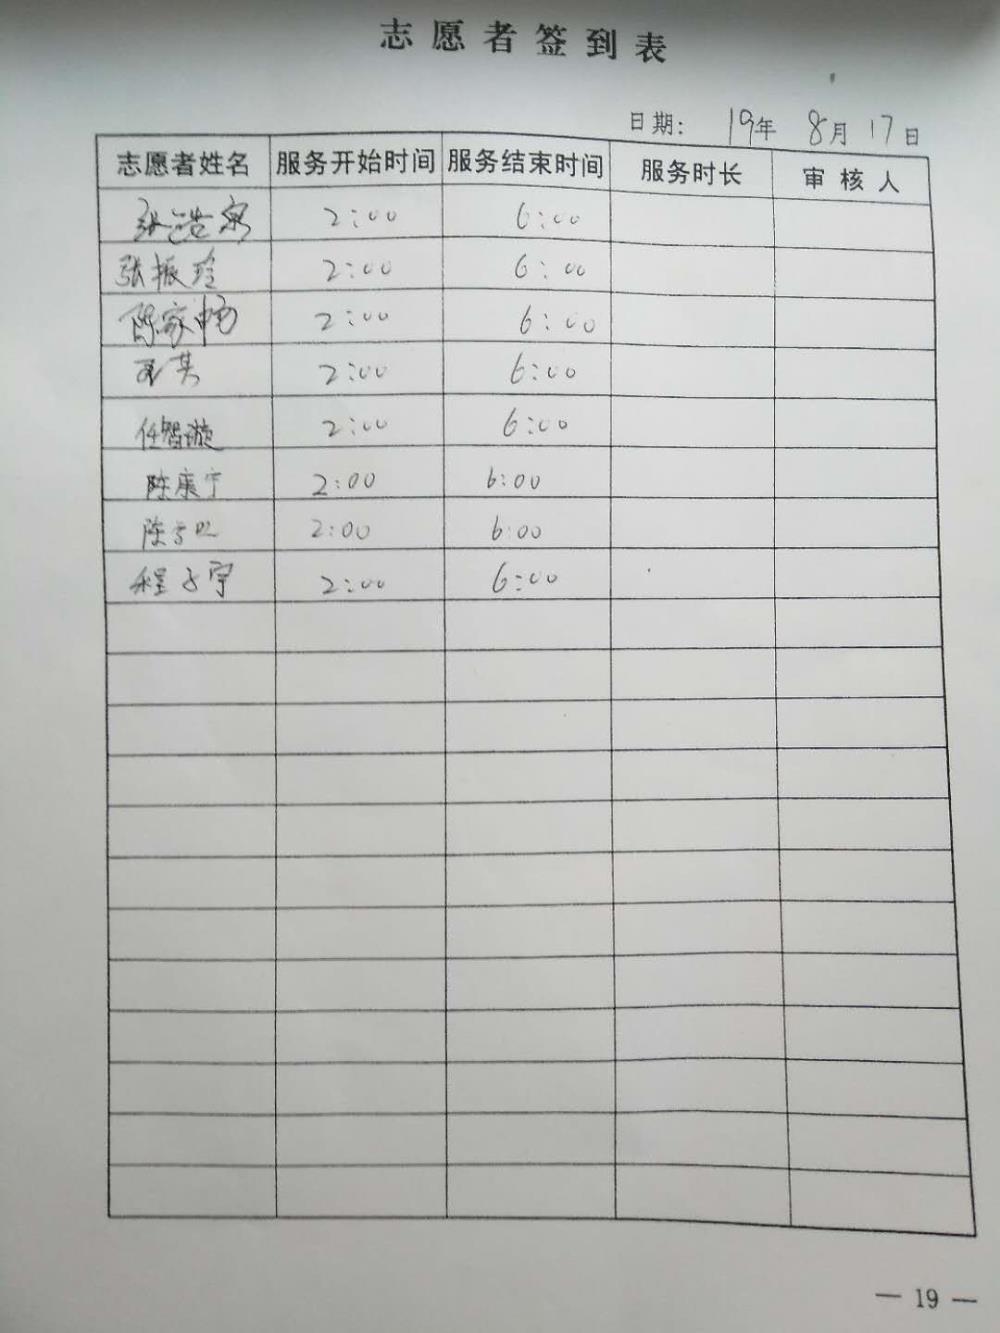 志愿者签到表
日期: 19年 8月 17日
志愿者姓名 服务开始时间 服务结束时间 服务时长 审核人
张浩 2:00 6:00
张振玲 2:00 6:00
陈家畅 2:00 6:00
其 2:00 6:00
任智漩 2:00 6:00
陈康宁 2:00 6:00
陈 2:00 6:00
程子宇 2:00 6:00
— 19 —